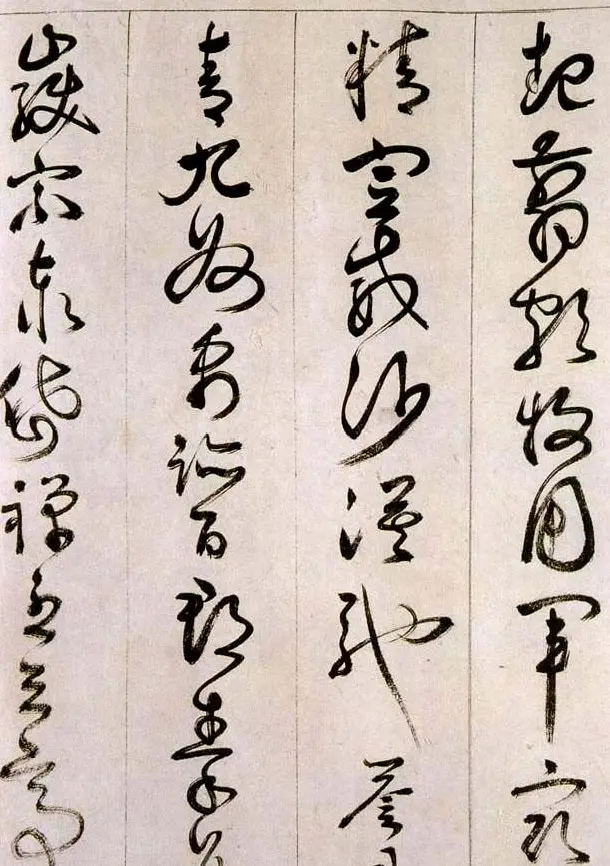 起翦頗牧用軍最
精宣威沙漠馳譽丹
青九州禹跡百郡秦并
嶽宗泰岱禪主云亭